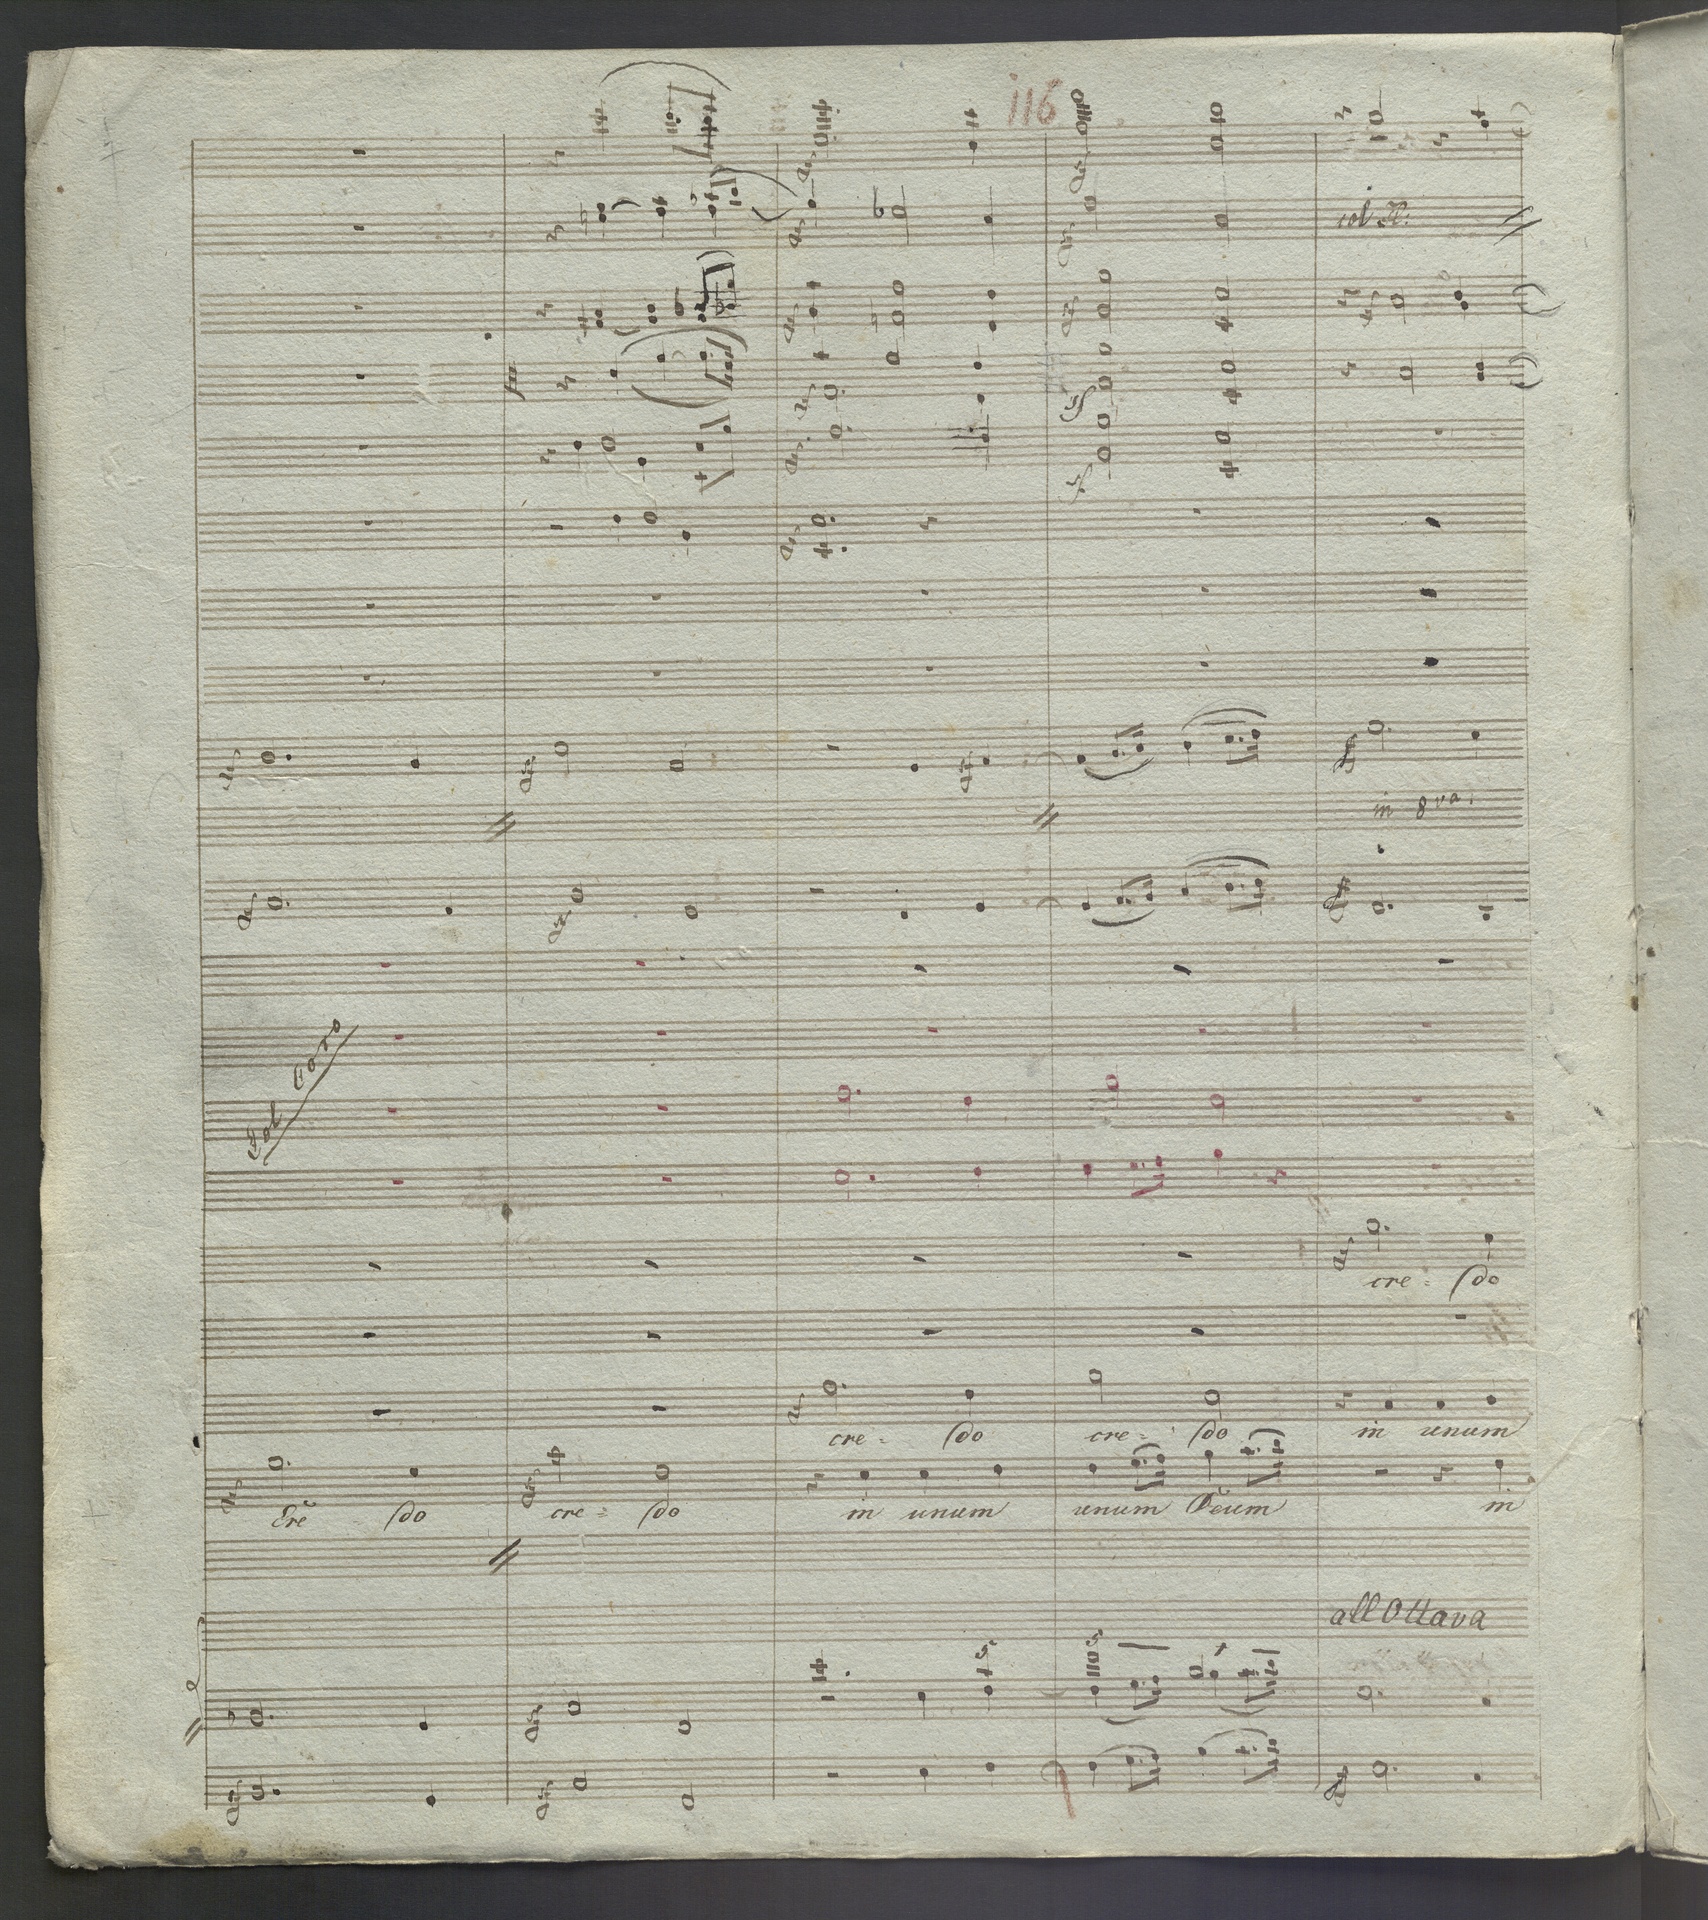 116
col
in 8va.
Col Coro
cre = do
cre = do cre = do in unum
Cre do cre = do in unum unum Deum in
all Ottava